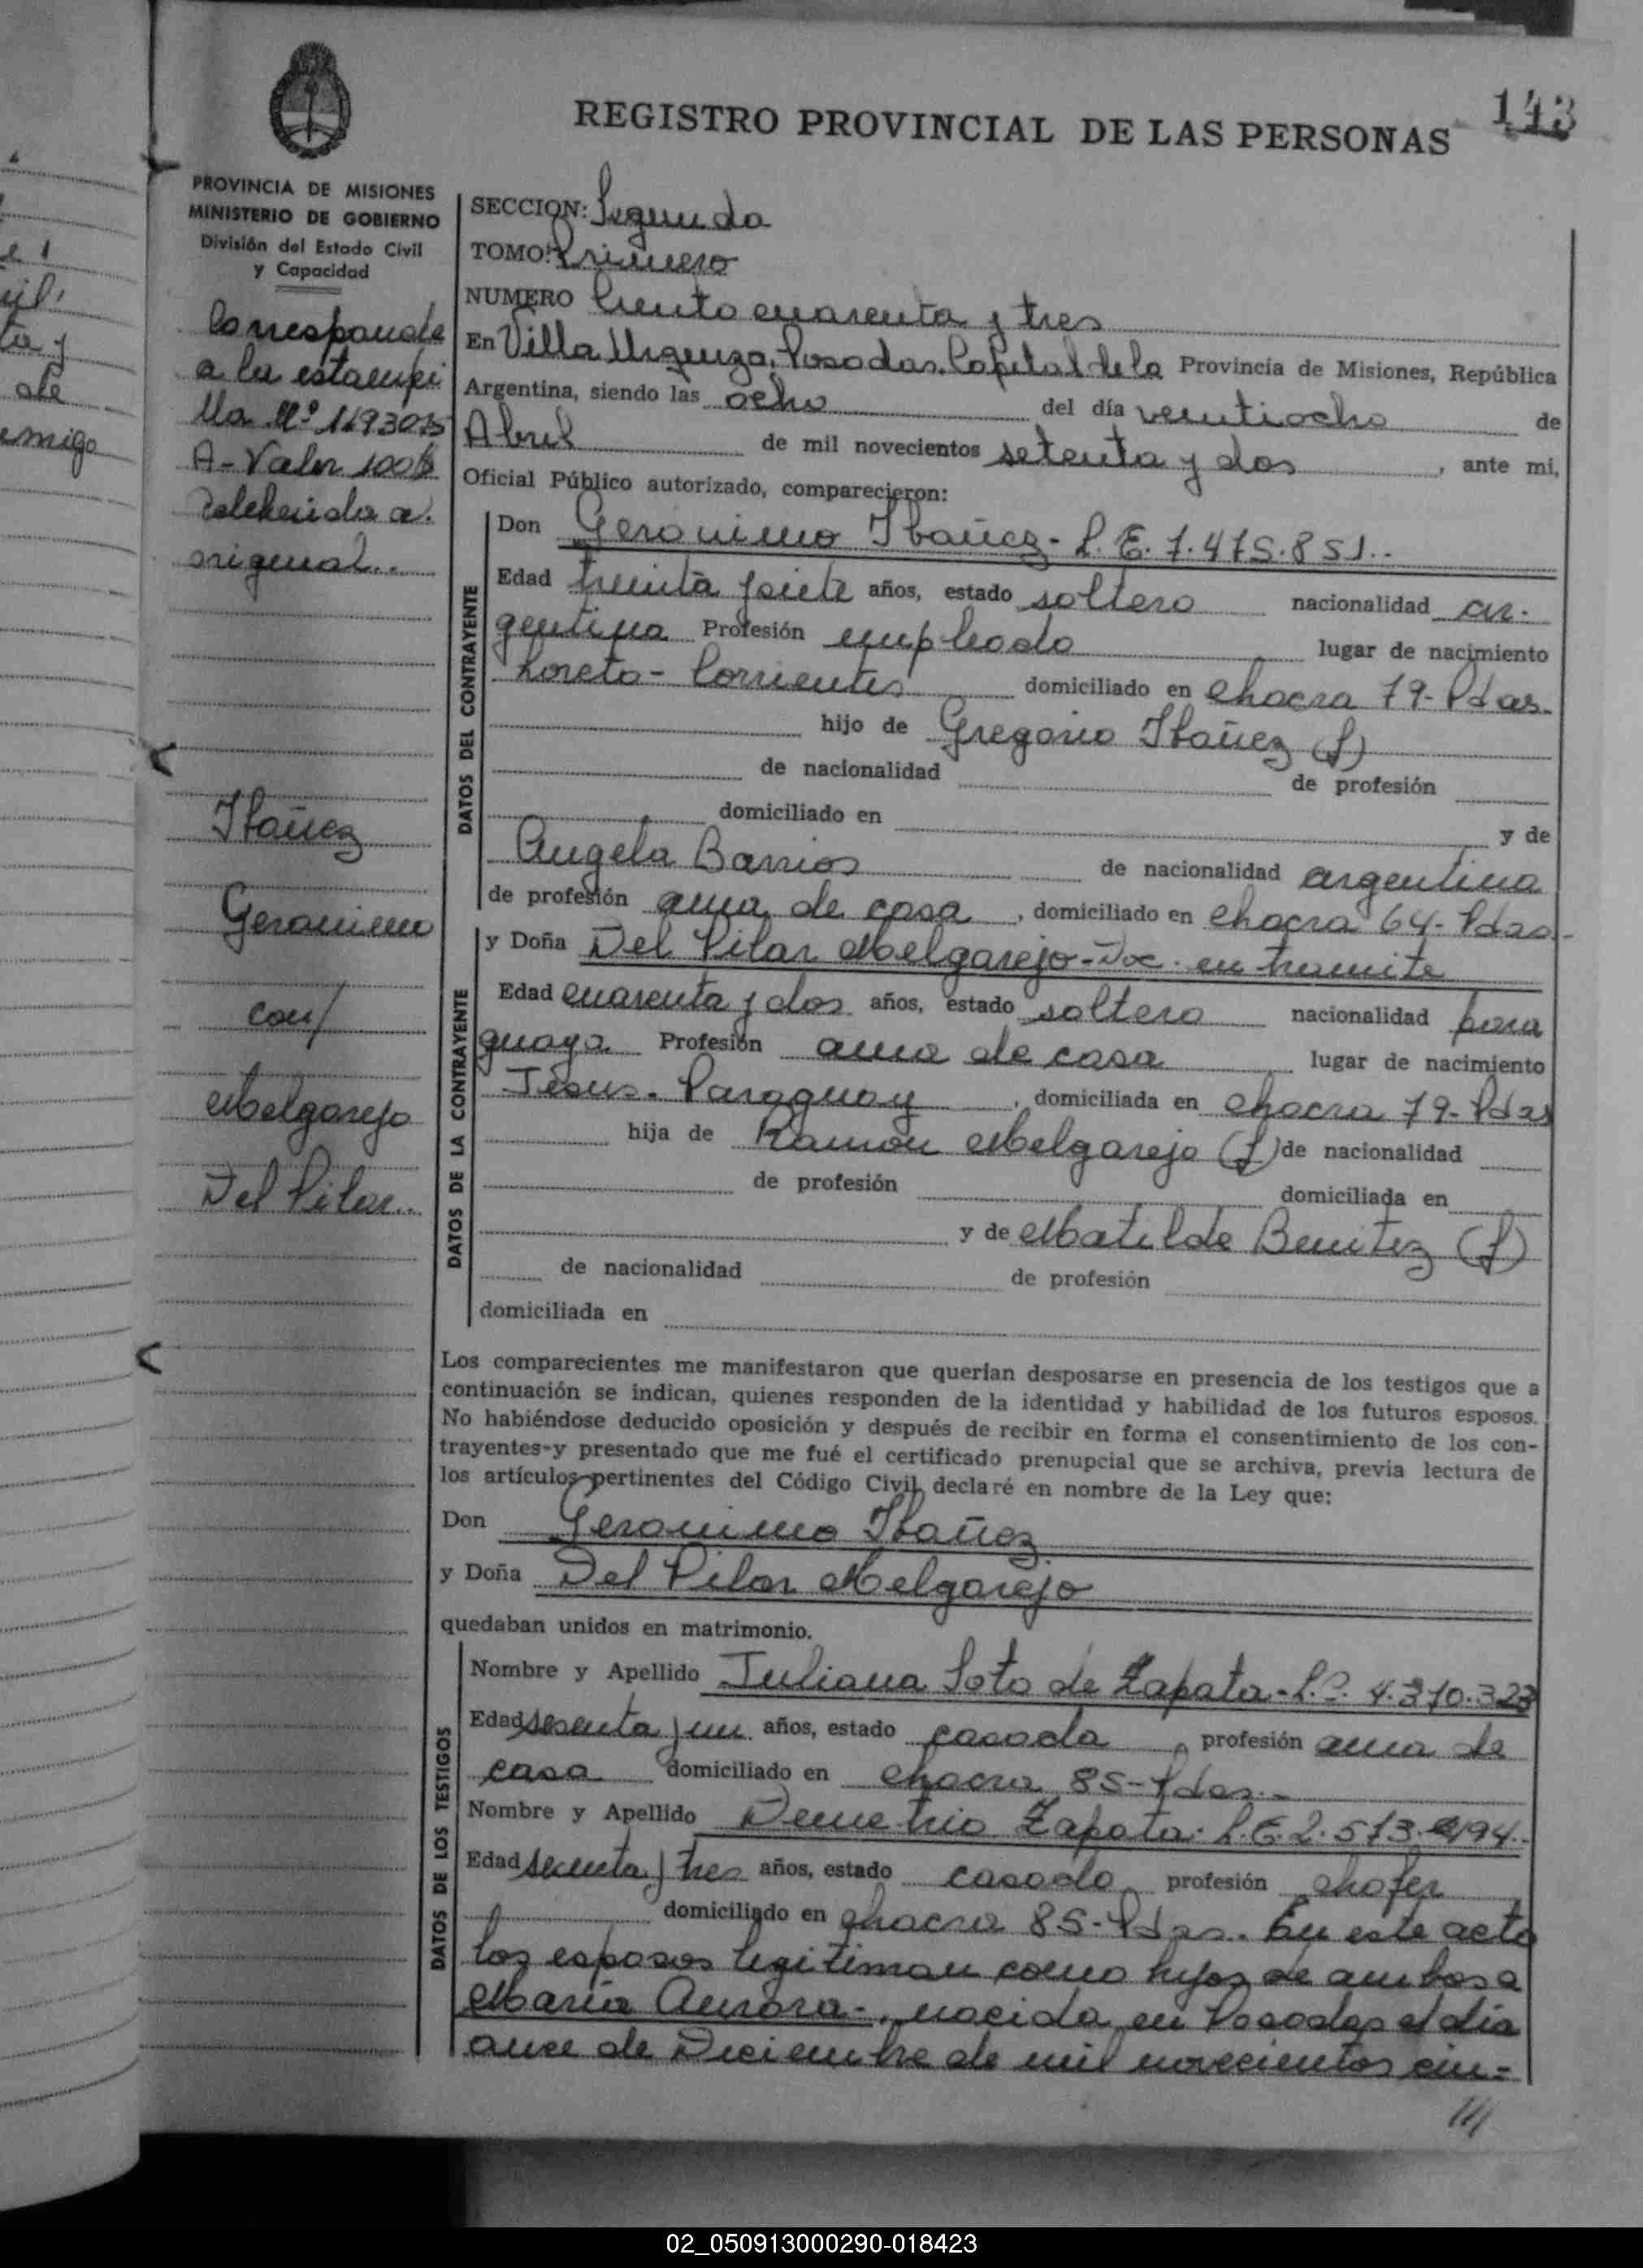 143
REGISTRO PROVINCIAL DE LAS PERSONAS
PROVINCIA DE MISIONES
MINISTERIO DE GOBIERNO
División del Estado Civil
y Capacidad
Corresponde
a la estampi
lla Nº
A- Valor 100$
original..
Ibañez
Geronimo
con/
Melgarejo
Del Pilar..
SECCION: Segunda
TOMO: Primero
NUMERO Ciento cuarenta y tres
En Villa Urquiza, Posadas, Capital de la Provincia de Misiones, República
Argentina, siendo las ocho del día veintiocho de
Abril de mil novecientos setenta y dos, ante mi,
Oficial Público autorizado, comparecieron:
DATOS DEL CONTRAYENTE
Don Geronimo Ibañez- L.E. 7.475.851..
Edad treinta y siete años, estado soltero nacionalidad ar-
gentina Profesión empleado lugar de nacimiento
Loreto- Corrientes domiciliado en chacra 79- Pdas.
hijo de Gregorio Ibañez (f)
de nacionalidad de profesión
domiciliado en y de
Angela Barrios de nacionalidad argentina
de profesión ama de casa, domiciliado en chacra 64- Pdas.-
DATOS DE LA CONTRAYENTE
y Doña Del Pilar Melgarejo- Doc. en tramite
Edad cuarenta y dos años, estado soltera nacionalidad para
guaya Profesión ama de casa lugar de nacimiento
Jesus- Paraguay, domiciliada en chacra 79- Pdas
hija de Ramon Melgarejo (f) de nacionalidad
de profesión domiciliada en
y de Matilde Benitez (f)
de nacionalidad de profesión
domiciliada en
Los comparecientes me manifestaron que querían desposarse en presencia de los testigos que a
continuación se indican, quienes responden de la identidad y habilidad de los futuros esposos.
No habiéndose deducido oposición y después de recibir en forma el consentimiento de los con-
trayentes y presentado que me fué el certificado prenupcial que se archiva, previa lectura de
los artículos pertinentes del Código Civil, declaré en nombre de la Ley que:
Don Geronimo Ibañez
y Doña Del Pilar Melgarejo
quedaban unidos en matrimonio.
DATOS DE LOS TESTIGOS
Nombre y Apellido Juliana Soto de Zapata- L.C. 4.370.323
Edad sesenta y un años, estado casada, profesión ama de
casa domiciliado en chacra 85- Pdas.-
Nombre y Apellido Demetrio Zapata- L.E. 2.573.
Edad y tres años, estado casado, profesión chofer
domiciliado en chacra 85- Pdas. En este acto
los esposos legitiman como hijos de ambos a
Maria Aurora-, nacida en Posadas el dia
once de Diciembre de mil novecientos cin-
///
02_050913000290-018423